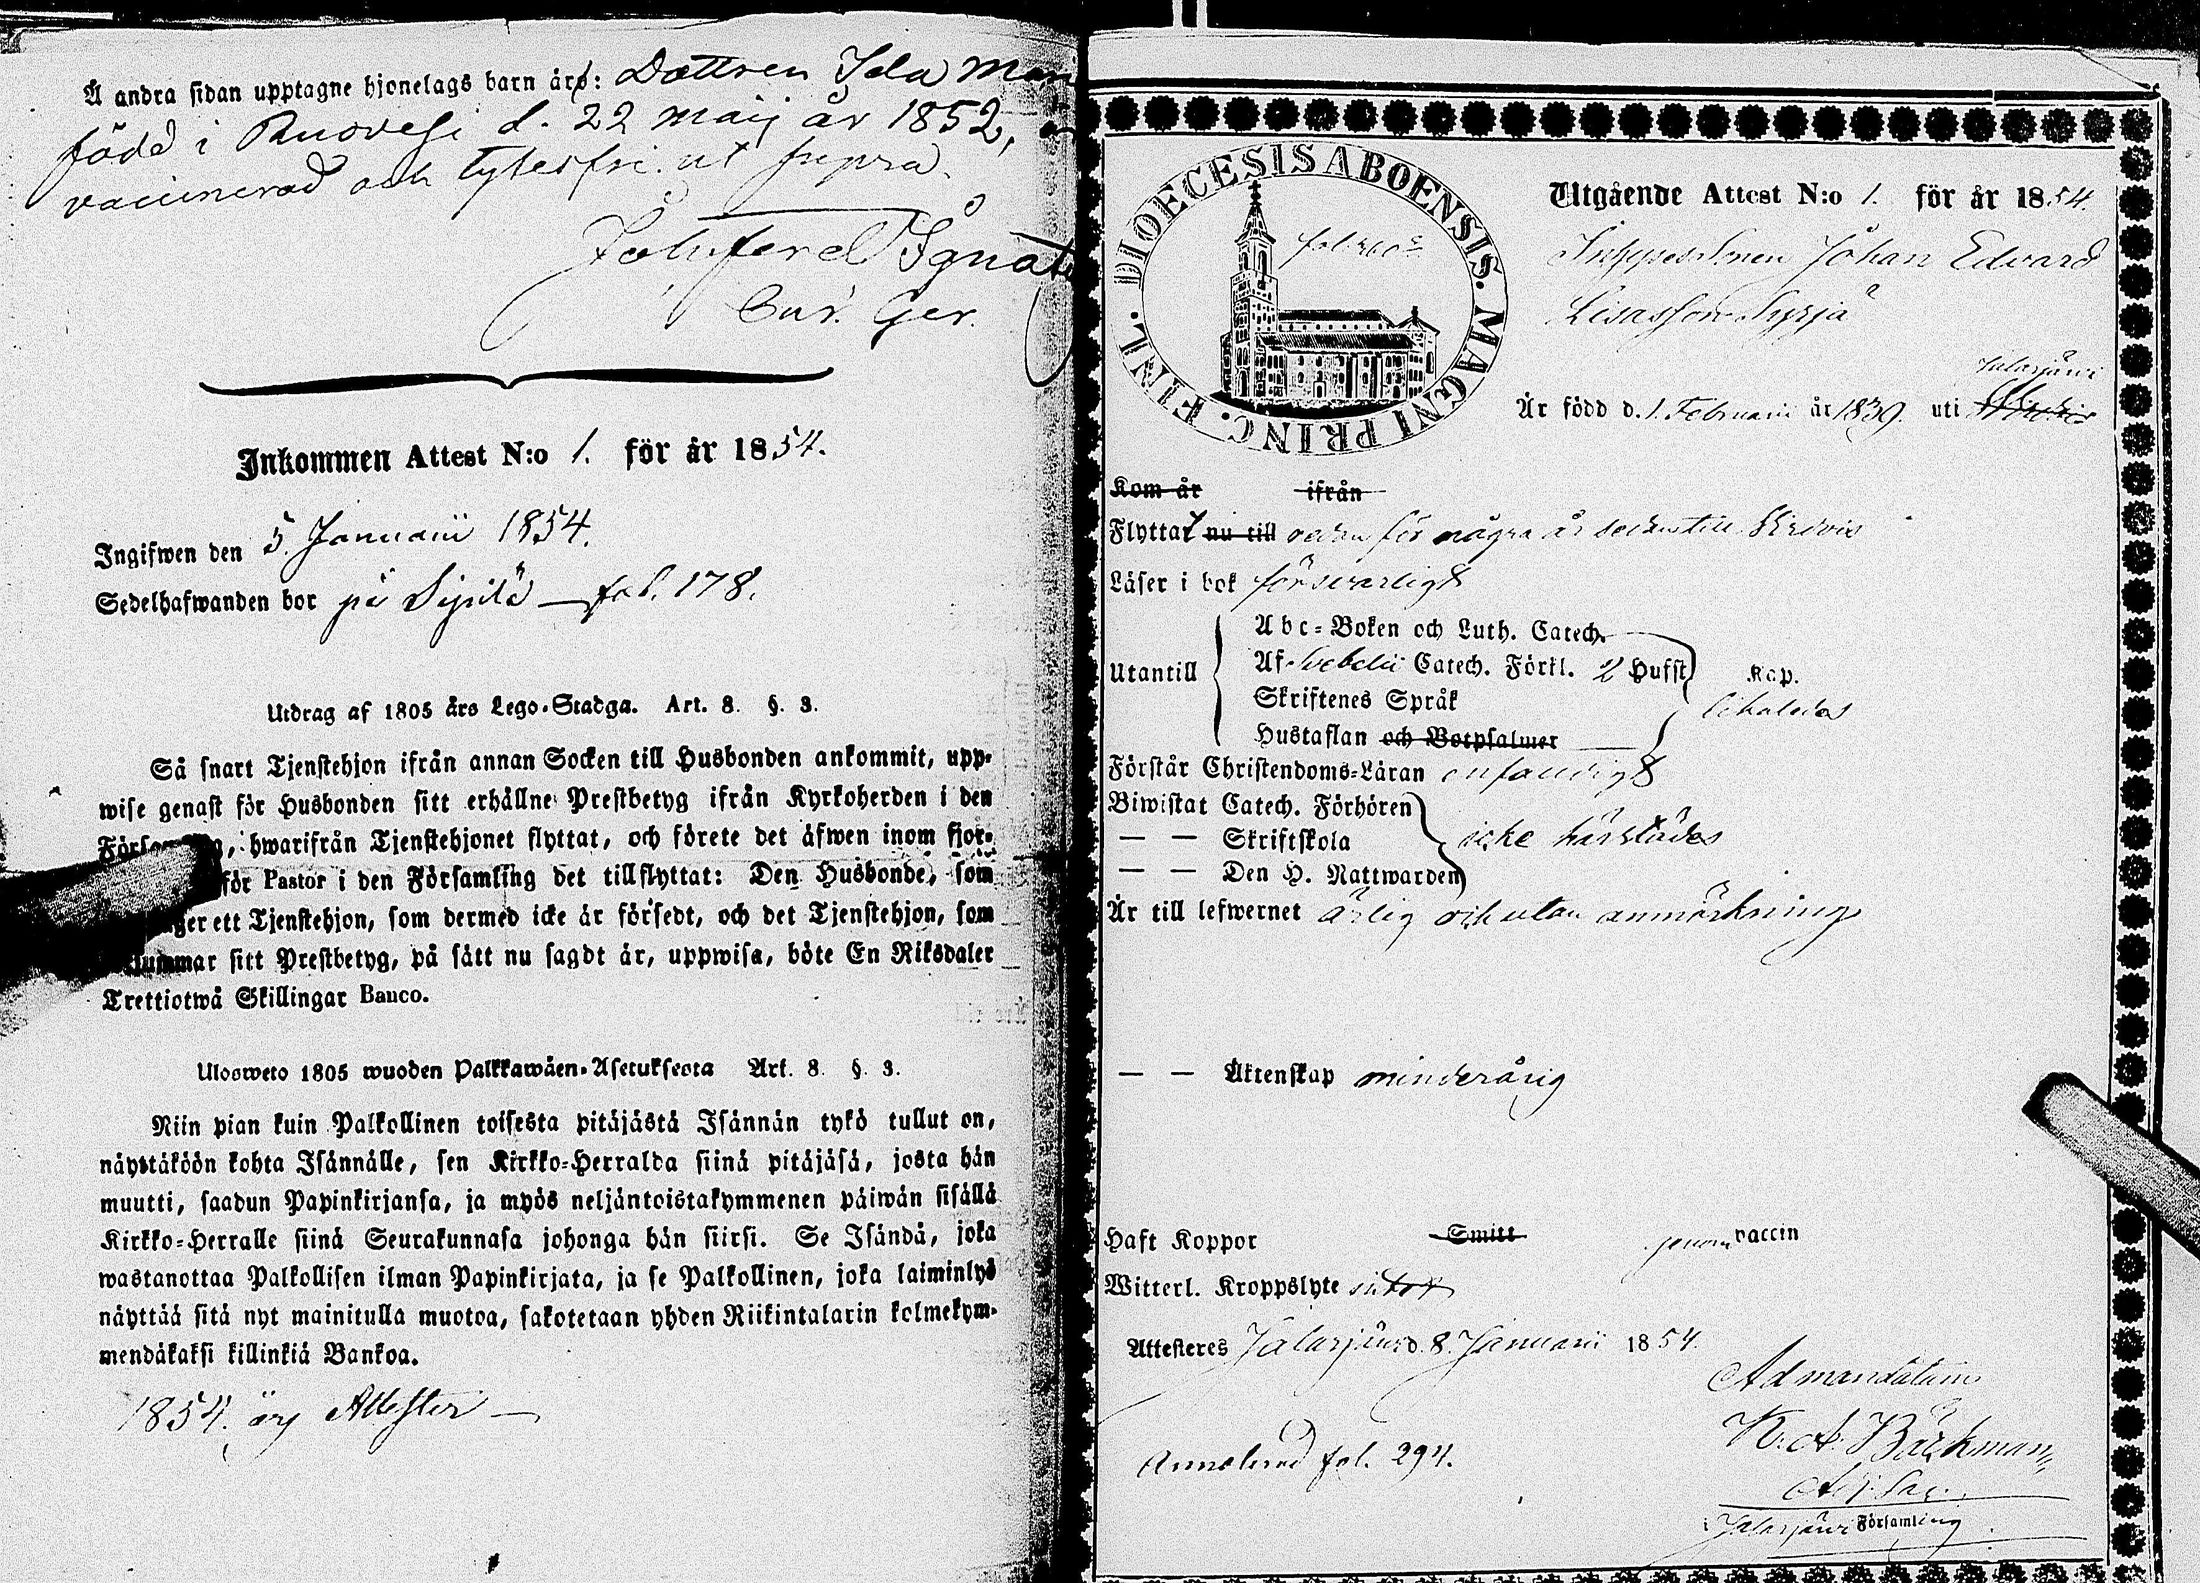 Å andra sidan upptagne hjonelags barn äro: Dottren Ida
född i Ruovesi d. 22 maij år 1852,
vaccinerad och lytesfri ut supra.
Ignat
Cur. Ger.
Inkommen Attest N:o 1. för år 1854.
Ingifwen den 5. Januarii 1854.
Sedelhafwanden bor på Sipilä fol. 178.
Utdrag af 1805 års Lego-Stadga. Art. 8. §. 3.
Så snart Tjenstehjon ifrån annan Socken till Husbonden ankommit, upp-
wise genast för Husbonden sitt erhållne Prestbetyg ifrån Kyrkoherden i den
hwarifrån Tjenstehjonet flyttat, och förete det äfwen inom fjor-
för Pastor i den Församling det tillflyttat: Den Husbonde, som
ett Tjenstehjon, som dermed icke är försedt, och det Tjenstehjon, som
sitt Prestbetyg, på sätt nu sagdt är, uppwisa, böte En Riksdaler
Trettiotwå Skillingar Banco.
Ulosweto 1805 wuoden Palkkawäen-Asetuksesta Art. 8. §. 3.
Niin pian kuin Palkollinen toisesta pitäjästä Isännän tykö tullut on,
näyttäköön kohta Isännälle, sen Kirkko-Herralda siinä pitäjäsä, josta hän
muutti, saadun Papinkirjansa, ja myös neljäntoistakymmenen päiwän sisällä
Kirkko-Herralle siinä Seurakunnasa johonga hän siirsi. Se Isändä, joka
wastanottaa Palkollisen ilman Papinkirjata, ja se Palkollinen, joka laiminlyö
näyttää sitä nyt mainitulla muotoa, sakotetaan yhden Riikintalarin kolmekym-
mendäkaksi killinkiä Bankoa.
1854. Attester
DIOECESIS ABOENSIS. MAGNI PRINC. FINL.
Utgående Attest N:o 1. för år 1854.
Johan Edvard
Lisasson Syrjä
Jalasjärvi
Är född d. 1. Februarii år 1839. uti
Kom år ifrån
Flyttat nu till redan för några år sedan till
Läser i bok försvarligt
Abc-Boken och Luth. Catech.
Utantill Af Svebelii Catech. Förkl. 2 Hufst. Kap.
Skriftenes Språk
Hustaflan och Botpsalmer
Förstår Christendoms-Läran enfaldigt
Biwistat Catech. Förhören
— — Skriftskola icke härstädes
— — Den H. Nattwarden
Är till lefwernet ärlig och utan anmärkning
— — Äktenskap minderårig
Haft Koppor Smitt genom vaccin
Witterl. Kroppslyte
Attesteres Jalasjärvi d. 8. Januarii 1854.
Ad mandatum
K. A. Bäckman
Annoterad fol. 294.
Jalasjärvi Församling